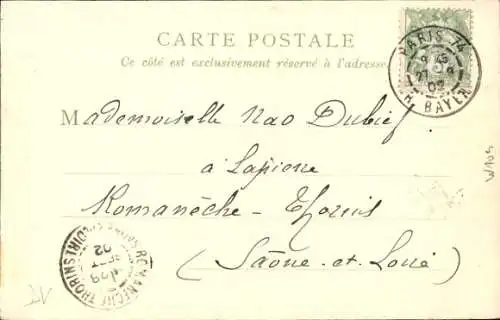 CARTE POSTALE
Ce côté est exclusivement réservé à l'adresse
PARIS 74
R. BAYEN
02
Mademoiselle Nao Dubief
à Lapierre
Romanèche-Thorins
(Saône-et-Loire)
ROMANECHE-THORINS
02
W103